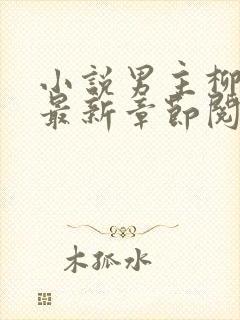 小説男主柳
最新章節閱
木孤水